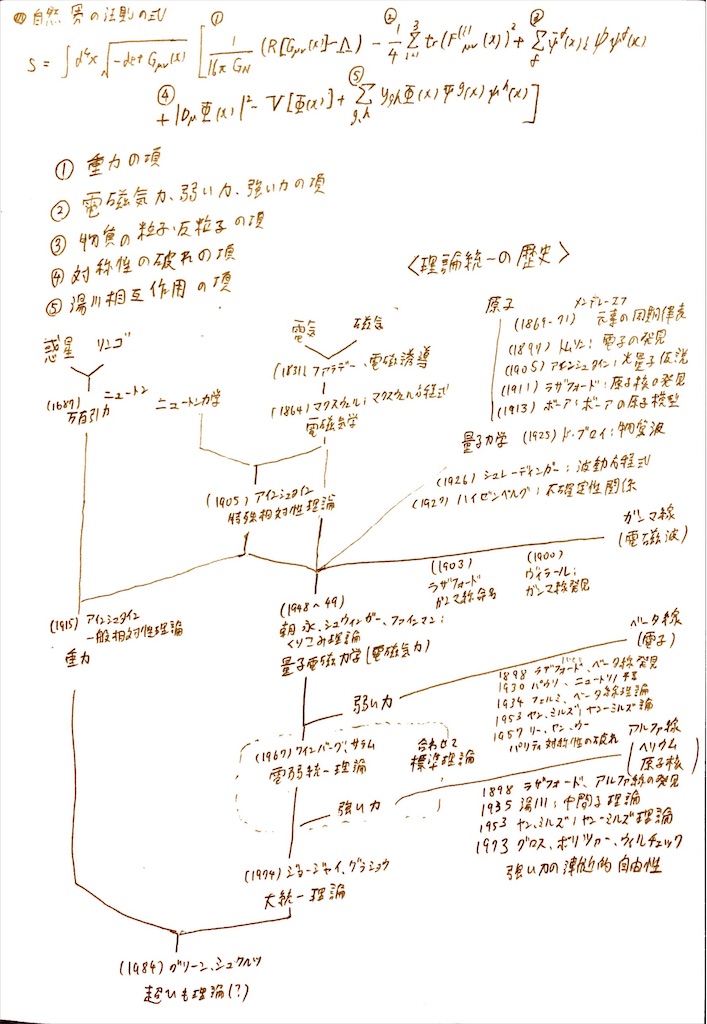 (1) 自然界の法則の式
S = ∫d⁴x √(-det Gμν(x)) [ ① 1/(16πG_N) (R[Gμν(x)]-Λ) - ② 1/4 Σ_{i=1}^{3} tr(F^{(i)}μν(x))² + ③ Σ_f ψ̄^f(x) i D̸ ψ^f(x)
④ + |DμΦ(x)|² - V[Φ(x)] + ⑤ Σ_{g,h} y_{gh} Φ(x) ψ̄^g(x) ψ^h(x) ]
① 重力の項
② 電磁気力、弱い力、強い力の項
③ 物質の粒子・反粒子の項
④ 対称性の破れの項
⑤ 湯川相互作用の項
<理論統一の歴史>
惑星 リンゴ
(1687) ニュートン
万有引力
ニュートン力学
電気 磁気
(1831) ファラデー、電磁誘導
(1864) マクスウェル; マクスウェル方程式
電磁気学
原子
メンデレーエフ
(1869-71) 元素の周期律表
(1897) トムソン: 電子の発見
(1905) アインシュタイン: 光量子仮説
(1911) ラザフォード: 原子核の発見
(1913) ボーア: ボーアの原子模型
量子力学 (1925) ド・ブロイ: 物質波
(1926) シュレーディンガー: 波動方程式
(1927) ハイゼンベルグ: 不確定性関係
(1905) アインシュタイン
特殊相対性理論
ガンマ線
(電磁波)
(1903)
ラザフォード
ガンマ線命名
(1900)
ヴィラール;
ガンマ線発見
(1915) アインシュタイン
一般相対性理論
重力
(1948~49)
朝永、シュウィンガー、ファインマン;
くりこみ理論
量子電磁力学(電磁気力)
ベータ線
(電子)
弱い力
1898 ラザフォード、ベータ線発見
1930 パウリ、ニュートリノ予言
1934 フェルミ、ベータ線理論
1953 ヤン、ミルズ; ヤン-ミルズ論
1957 リー、ヤン、ウー
パリティ対称性の破れ
(1967) ワインバーグ; サラム
電弱統一理論
合わせて
標準理論
アルファ線
(ヘリウム
原子核)
強い力
1898 ラザフォード、アルファ線の発見
1935 湯川; 中間子理論
1953 ヤン、ミルズ; ヤン-ミルズ理論
1973 グロス、ポリツァー、ウィルチェック
強い力の漸近的自由性
(1974) ジョージャイ、グラショウ
大統一理論
(1984) グリーン、シュワルツ
超ひも理論(?)